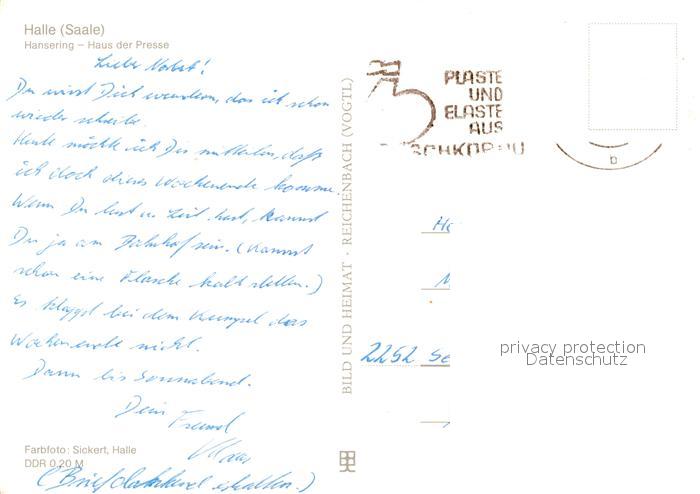 Halle (Saale)
Hansering – Haus der Presse
Lieber Norbert!
Du wirst Dich wundern, das ich schon
wieder schreibe.
Heute möchte ich Dir mitteilen, daß
ich doch dieses Wochenende komme.
Wenn Du lust u. Zeit hast, kannst
Du ja am Bahnhof sein. (Kannst
schon eine Flasche kalt stellen.)
Es klappt bei dem Kumpel das
Wochenende nicht.
Dann bis Sonnabend.
Dein
Freund
Klaus
(Brief dankend erhalten.)
Farbfoto: Sickert, Halle
DDR 0,20 M
BILD UND HEIMAT · REICHENBACH (VOGTL)
PLASTE
UND
ELASTE
AUS
SCHKOPAU
b
2252 Se
privacy protection
Datenschutz